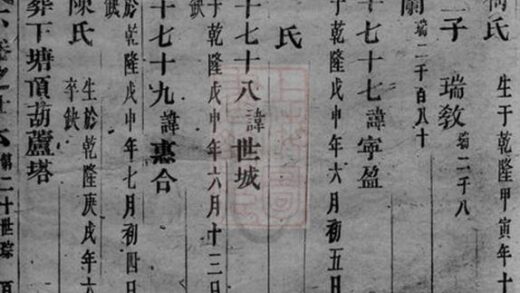 氏　生于乾隆甲寅年十
二子　瑞敎　瑞二千八
瑞二千百八十
七十七諱宇盈
于乾隆戊申年六月初五日
氏
七十八諱世城
于乾隆戊申年六月十三日
缺
七十九諱惠合
於乾隆戊申年七月初四日
缺
陳氏　生於乾隆庚戌年六
卒缺
葬下塘頂葫蘆塔
卷之　六　第二十世琮　百